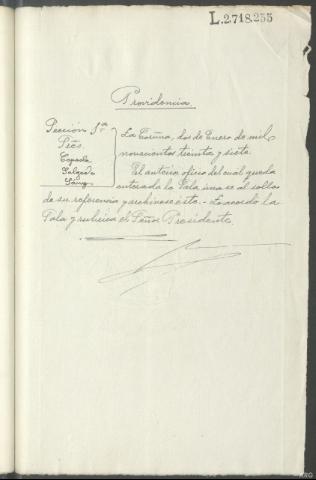 L.2.718.255
Providencia.
Sección 1ª
Pte.
Espada
Salgado
Sanz
La Coruña, dos de Enero de mil
novecientos treinta y siete.
El anterior oficio del cual queda
enterada la Sala únase al rollo
de su referencia y archívese éste.- Lo acordó la
Sala y rubrica el Señor Presidente.